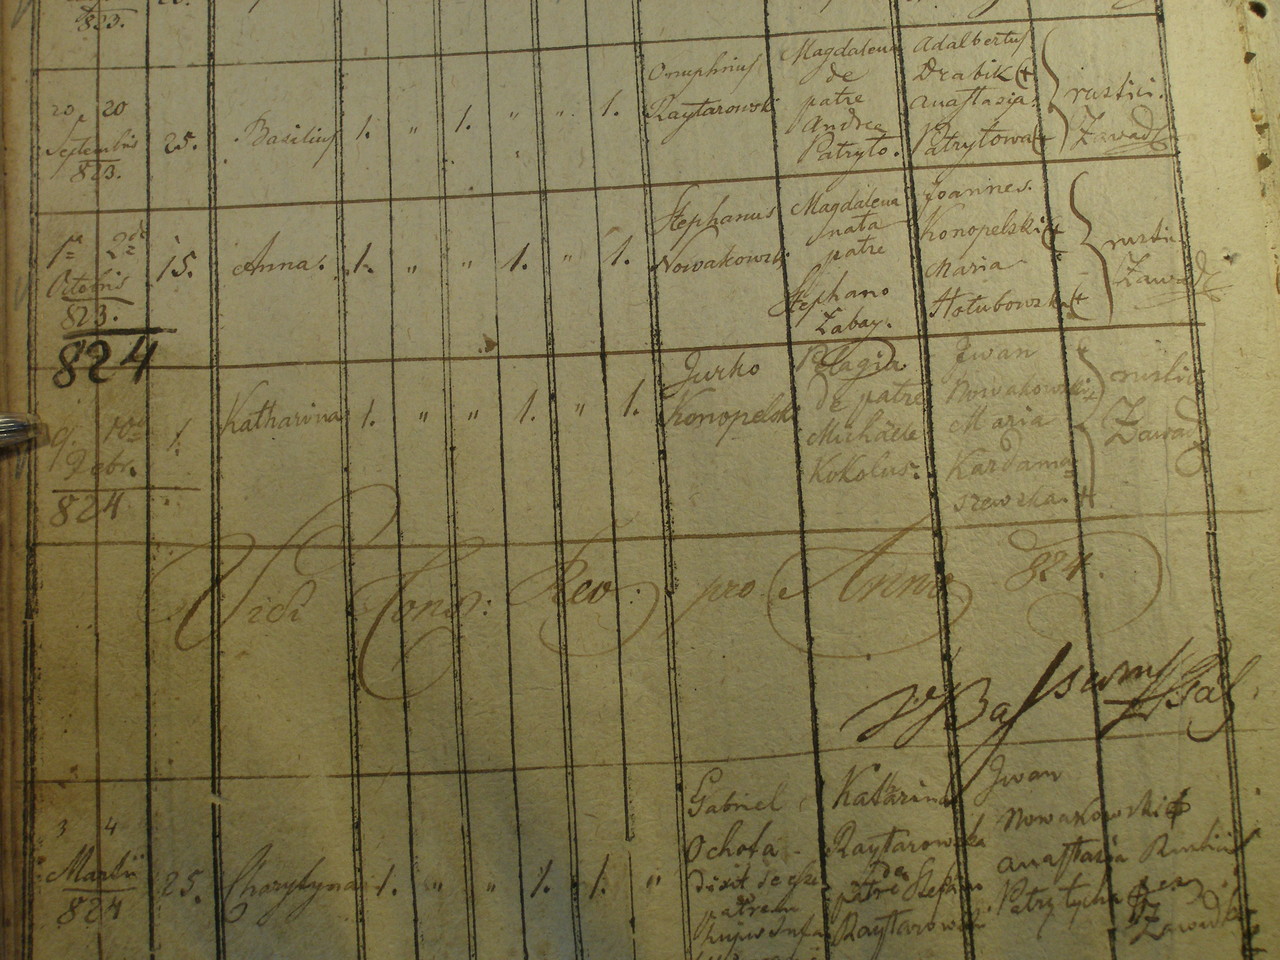 823.
20 20
Septembris
823.
25.
Basilius
1. " 1. " " 1.
Onuphrius
Raytarowski
Magdalena
de
patre
Andrea
Patryło.
Adalbertus
Drabik
Anastasia
Patryłowa
rustici.
Zawad
1ª 2da
Octobris
823.
15.
Anna.
1. " " 1. " 1.
Stephanus
Nowakowski
Magdalena
nata
patre
Stephano
Zabay.
Joannes
Konopelski
Maria
Hołubowska
rustici
Zawad
824
9. 10
824
1.
Katharina
1. " " 1. " 1.
Jurko
Konopelski
Pelagia
de patre
Michaele
Kokolus.
Iwan
Nowakowski
Maria
Kardama
szewska
rustici
Zawad
Vidi Cons: Rev: pro Anno 824.
3 4
Martii
824
25.
Charytyna
1. " " 1. 1. "
Gabriel
Ochota
dixit se esse
patrem
hujus infa
Katarina
Raytarowska
de
patre Stefano
Raytarowski
Iwan
Nowakowski
Anastasia
Patrylycha
Rustici
ex
Zawadka